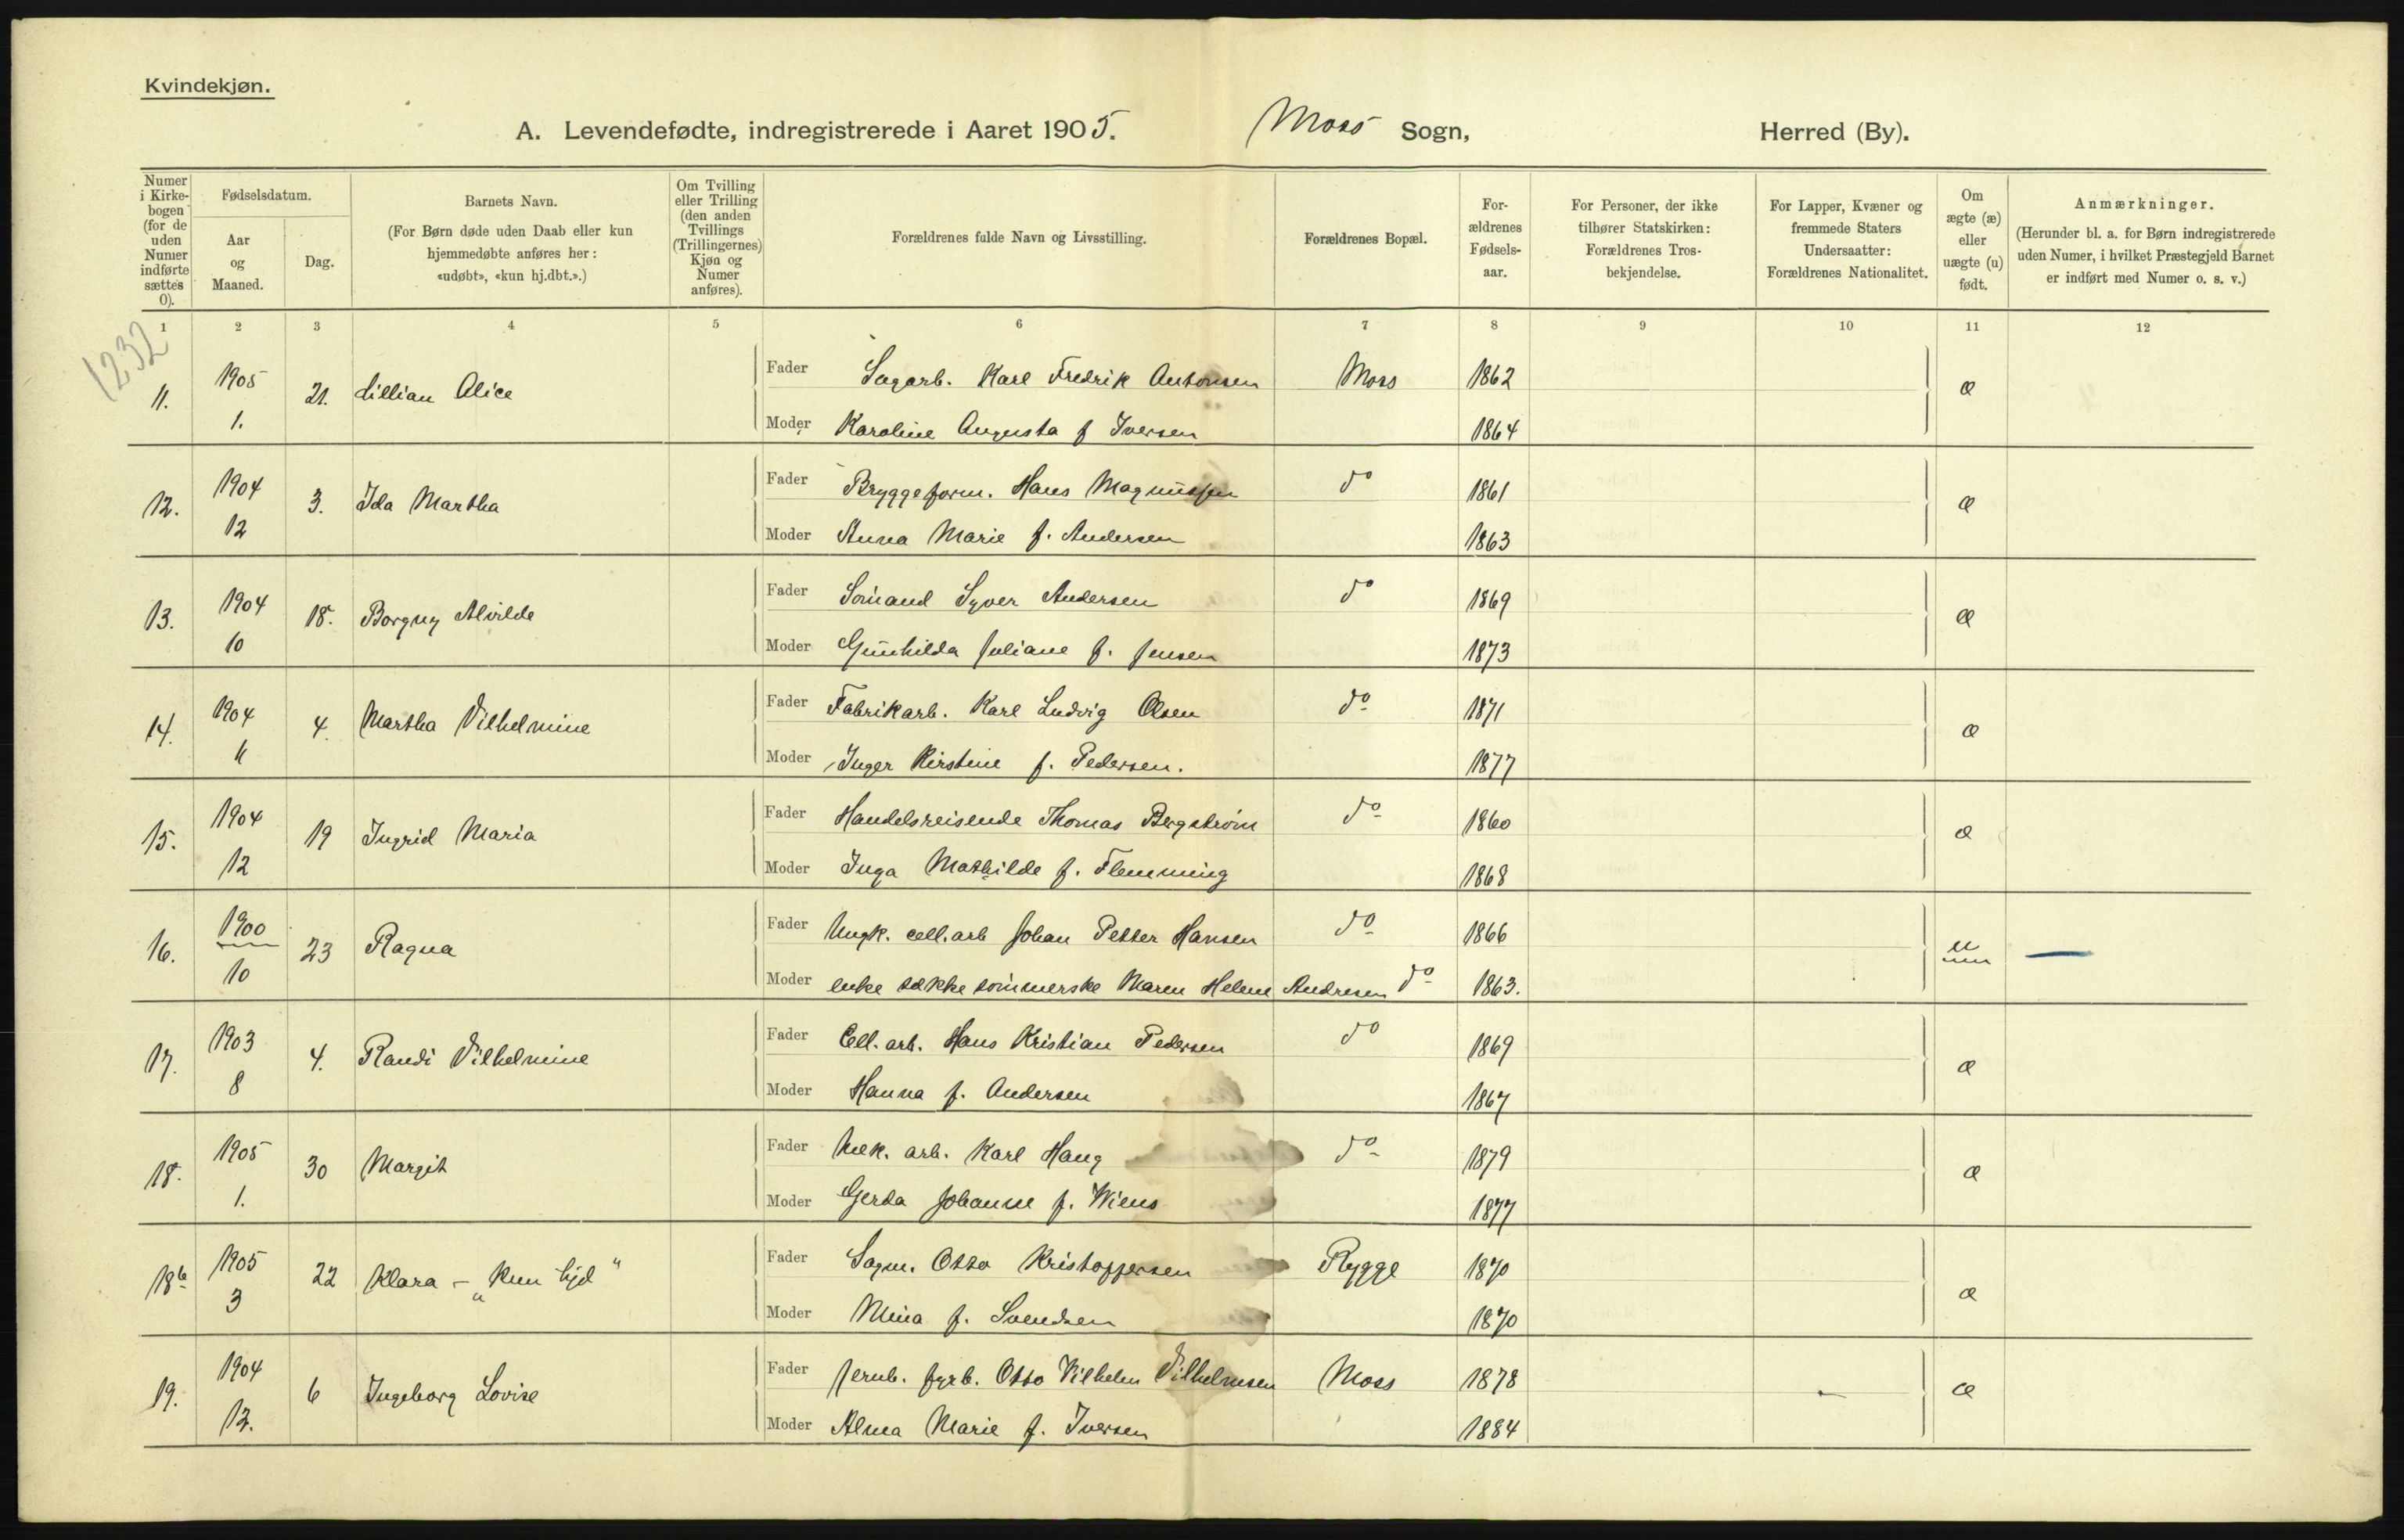 Kvindekjøn.
A. Levendefødte, indregistrerede i Aaret 1905. Moss Sogn, Herred (By).
Numer i Kirkebogen (for de uden Numer indførte sættes 0).
Fødselsdatum.
Aar og Maaned.
Dag.
Barnets Navn.
(For Børn døde uden Daab eller kun hjemmedøbte anføres her: «udøbt», «kun hj.dbt.».)
Om Tvilling eller Trilling (den anden Tvillings (Trillingernes) Kjøn og Numer anføres).
Forældrenes fulde Navn og Livsstilling.
Forældrenes Bopæl.
Forældrenes Fødselsaar.
For Personer, der ikke tilhører Statskirken: Forældrenes Trosbekjendelse.
For Lapper, Kvæner og fremmede Staters Undersaatter: Forældrenes Nationalitet.
Om ægte (æ) eller uægte (u) født.
Anmærkninger.
(Herunder bl. a. for Børn indregistrerede uden Numer, i hvilket Præstegjeld Barnet er indført med Numer o. s. v.)
1 2 3 4 5 6 7 8 9 10 11 12
1232
11. 1905 1. 21. Lillian Alice Fader Sagarb. Karl Fredrik Antonsen Moss 1862 æ
Moder Karoline Augusta f Iversen 1864
12. 1904 12 3. Ida Martha Fader Bryggeform. Hans Magnussen do 1861 æ
Moder Anna Marie f. Andersen 1863
13. 1904 10 18. Borgny Alvilde Fader Sömand Syver Andersen do 1869 æ
Moder Gunhilda Juliane f. Jensen 1873
14. 1904 11 4. Martha Vilhelmine Fader Fabrikarb. Karl Ludvig Olsen do 1871 æ
Moder Inger Kirstine f. Pedersen. 1877
15. 1904 12 19 Ingrid Maria Fader Handelsreisende Thomas Bergström do 1860 æ
Moder Inga Mathilde f. Flemming 1868
16. 1900 10 23 Ragna Fader Ungk. cell.arb Johan Petter Hansen do 1866 u
Moder enke sækkesömmerske Maren Helene Andresen do 1863.
17. 1903 8 4. Randi Vilhelmine Fader Cell. arb. Hans Kristian Pedersen do 1869 æ
Moder Hanna f. Andersen 1867
18. 1905 1. 30 Margit Fader Mek. arb. Karl Haug do 1879 æ
Moder Gerda Johanne f. Wiens 1877
18b 1905 3 22 Klara - „Kun hjd" Fader Sagm. Otto Kristoffersen Rygge 1870 æ
Moder Mina f. Svendsen 1870
19. 1904 12. 6 Ingeborg Lovise Fader Jernb. fyrb. Otto Vilhelm Vilhelmsen Moss 1878 æ
Moder Alma Marie f. Iversen 1884